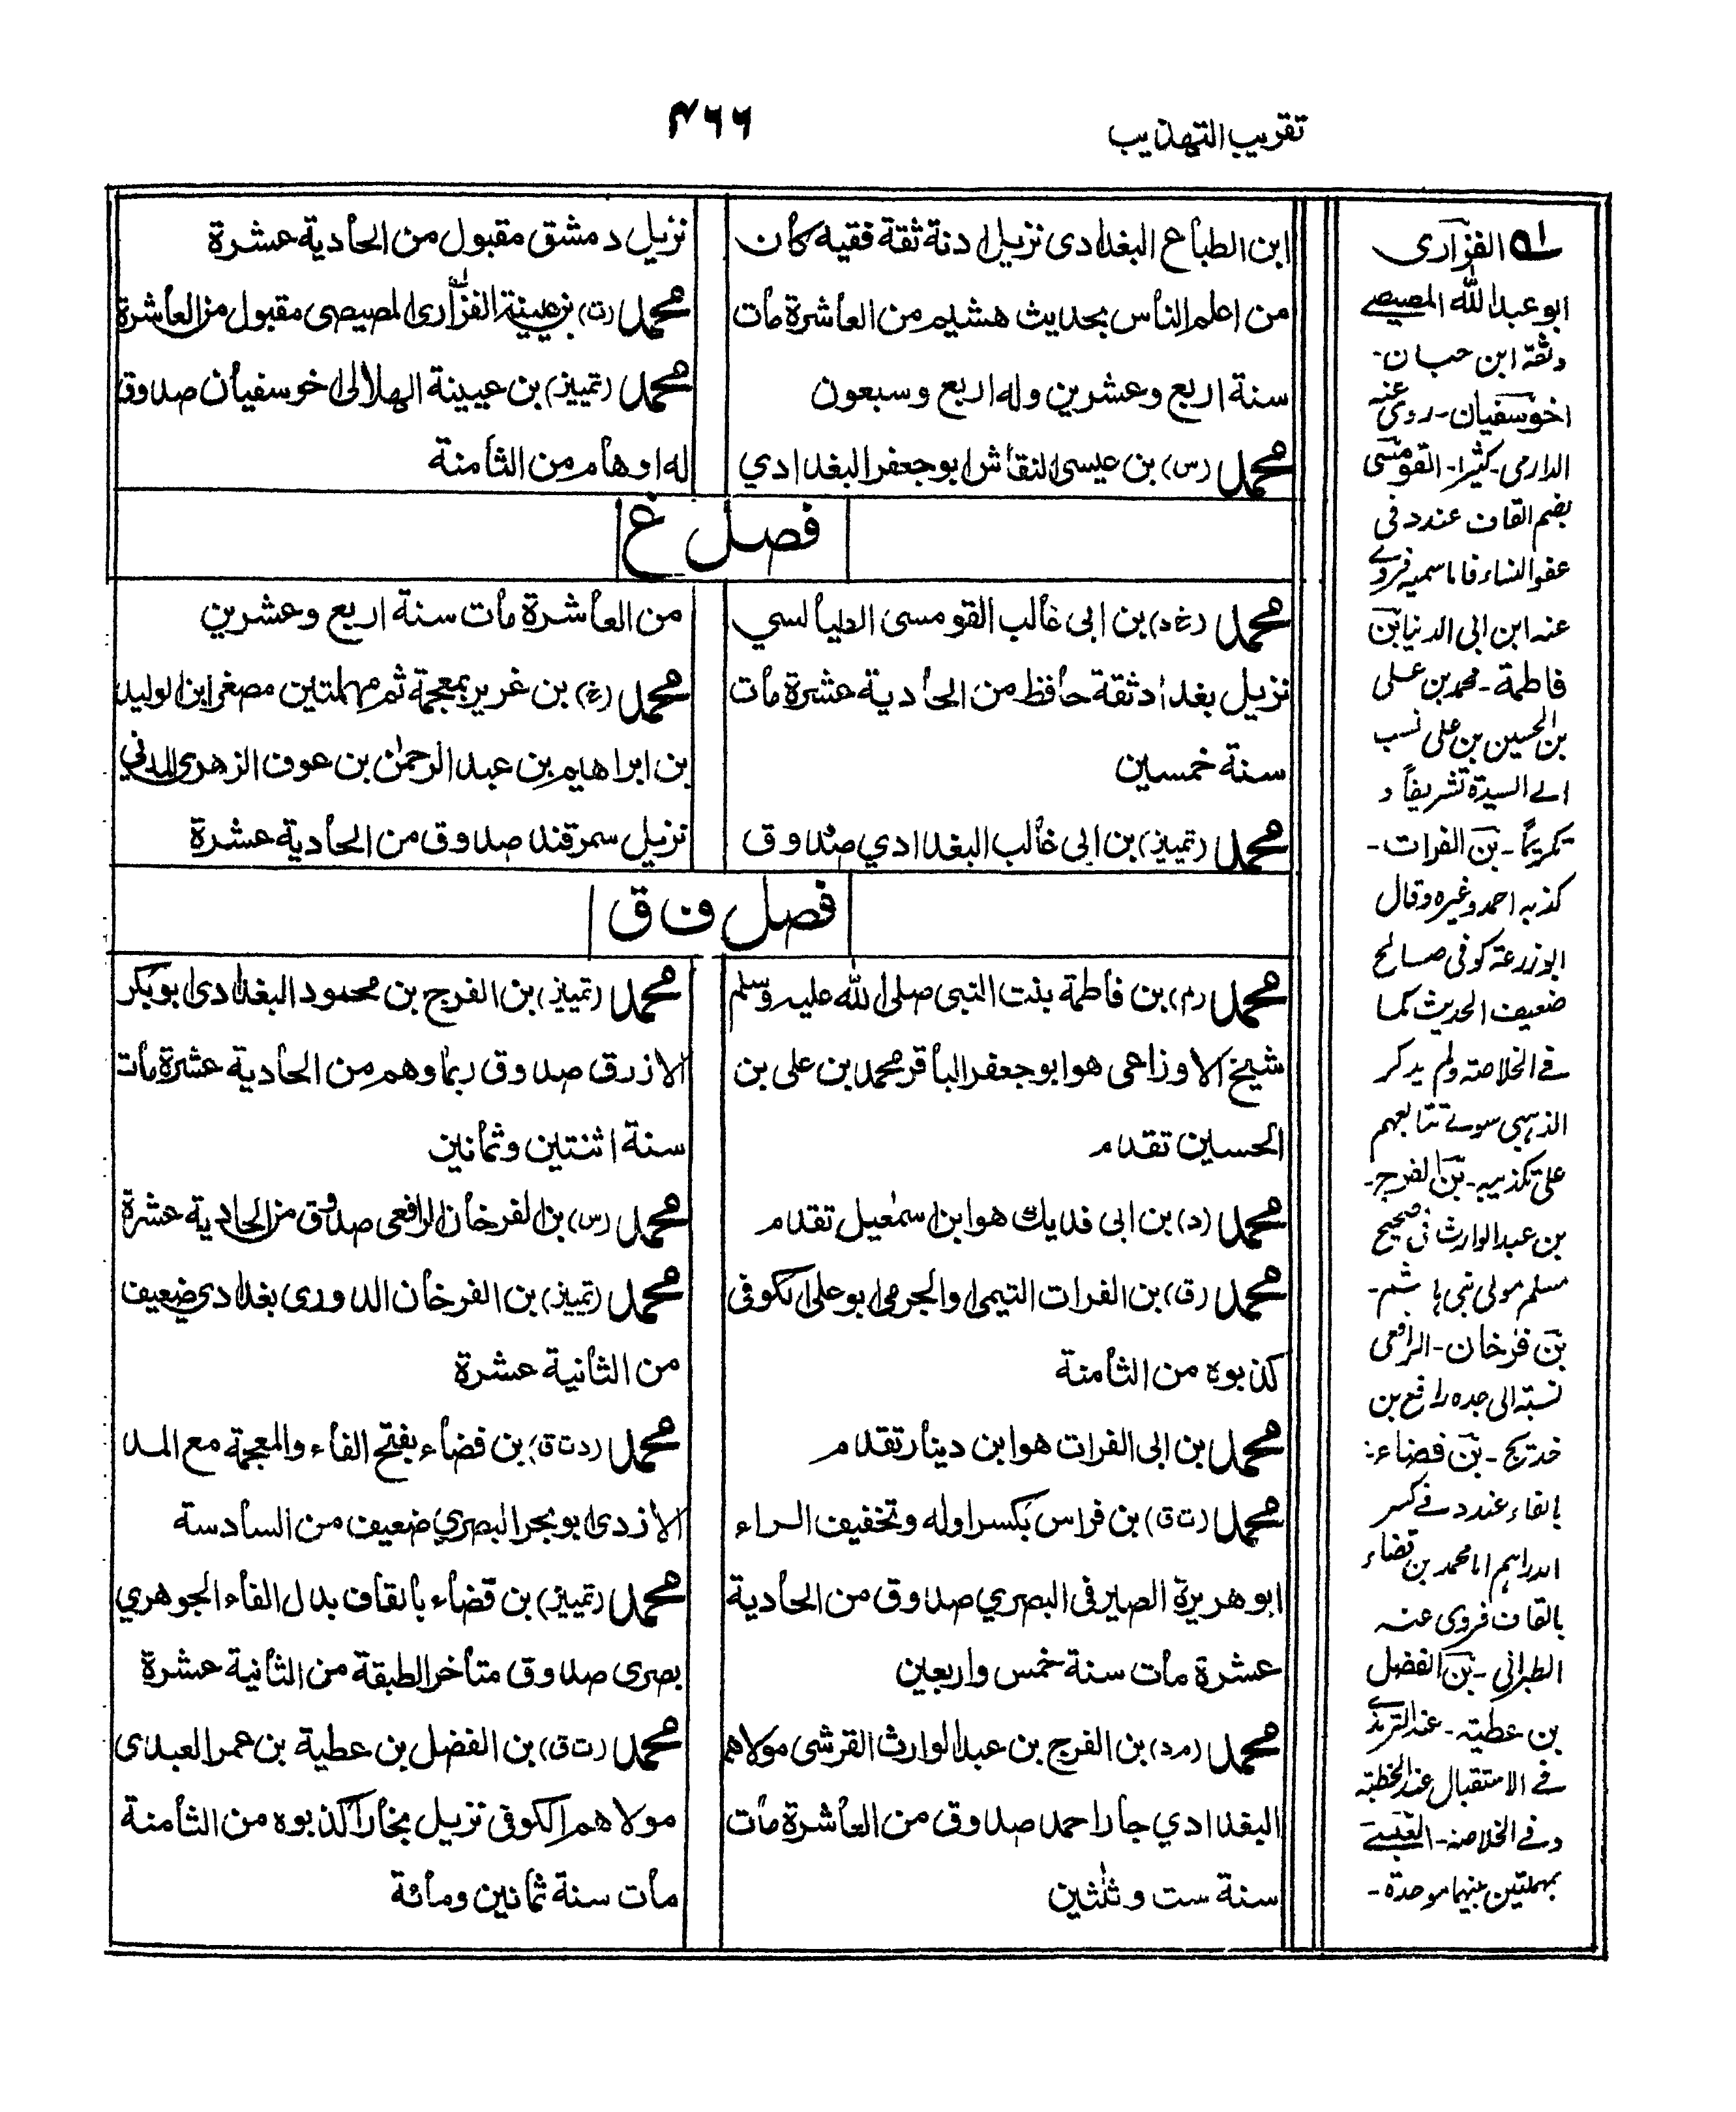 تقريب التهذيب
۴۶۶
ابن الطباع البغدادى نزيل اذنة ثقة فقيه كان
من اعلم الناس بحديث هشيم من العاشرة مات
سنة اربع وعشرين وله اربع وسبعون
محمد (س) بن عيسى النقاش ابو جعفر البغدادي
نزيل دمشق مقبول من الحادية عشرة
محمد (ت) بن عيينة الفزارى المصيصى مقبول من العاشرة
محمد (تمييز) بن عيينة الهلالى اخو سفيان صدوق
له اوهام من الثامنة
فصل غ
محمد (غ د) بن ابى غالب القومسى الطيالسي
نزيل بغداد ثقة حافظ من الحادية عشرة مات
سنة خمسين
محمد (تمييز) بن ابى غالب البغدادي صدوق
من العاشرة مات سنة اربع وعشرين
محمد (خ) بن غرير بمعجمة ثم مهملتين مصغر ابن الوليد
بن ابراهيم بن عبد الرحمٰن بن عوف الزهرى المدني
نزيل سمرقند صدوق من الحادية عشرة
فصل ف ق
محمد (م) بن فاطمة بنت النبى صلى الله عليه وسلم
شيخ الاوزاعى هو ابو جعفر الباقر محمد بن على بن
الحسين تقدم
محمد (د) بن ابى فديك هو ابن سمٰعيل تقدم
محمد (ق) بن الفرات التيمى او الجرمى ابو على الكوفى
كذبوه من الثامنة
محمد بن ابى الفرات هو ابن دينار تقدم
محمد (ت ق) بن فراس بكسر اوله وتخفيف الراء
ابو هريرة الصيرفى البصري صدوق من الحادية
عشرة مات سنة خمس واربعين
محمد (م د) بن الفرج بن عبد الوارث القرشى مولاهم
البغدادي جار احمد صدوق من العاشرة مات
سنة ست وثلٰثين
محمد (تمييز) بن الفرج بن محمود البغدادى ابو بكر
الازرق صدوق ربما وهم من الحادية عشرة مات
سنة اثنتين وثمانين
محمد (س) بن الفرخان الرافعى صدوق من الحادية عشرة
محمد (تمييز) بن الفرخان الدورى بغدادي ضعيف
من الثانية عشرة
محمد (د ت ق) بن فضاء بفتح الفاء والمعجمة مع المد
الازدى ابو بحر البصري ضعيف من السادسة
محمد (تمييز) بن قضاء بالقاف بدل الفاء الجوهري
بصرى صدوق متأخر الطبقة من الثانية عشرة
محمد (ت ق) بن الفضل بن عطية بن عمر العبدى
مولاهم الكوفى نزيل بخارا كذبوه من الثامنة
مات سنة ثمانين ومائة
الفزارى
ابو عبد الله المصيصے
وثقه ابن حبان-
اخو سفيان- روى عنه
الدارمى- كثيرا- القومسى
بضم القاف عند د فى
عفو النساء فاما سميه فروے
عنه ابن ابى الدنيا بن
فاطمة- محمد بن على
بن الحسين بن على نسب
الے السيدة تشريفاً و
تكريماً- بن الفرات-
كذبه احمد وغيره وقال
ابو زرعة كوفى صالح
ضعيف الحديث كما
فے الخلاصة ولم يذكر
الذهبى سوے تتابعهم
على تكذيبه- بن الفرج-
بن عبد الوارث فى صحيح
مسلم مولى بنى هاشم-
بن فرخان- الرافعى
نسبة الى جده رافع بن
خديج- بن فضاء-
بالفاء عند د فے كسر
الدراهم اما محمد بن قضاء
بالقاف فروى عنه
الطبرانى- بن الفضل
بن عطية- عند الترمذے
فے الاستقبال عند الخطبة
وفے الخلاصة- العبسے
بمهملتين بينهما موحدة-